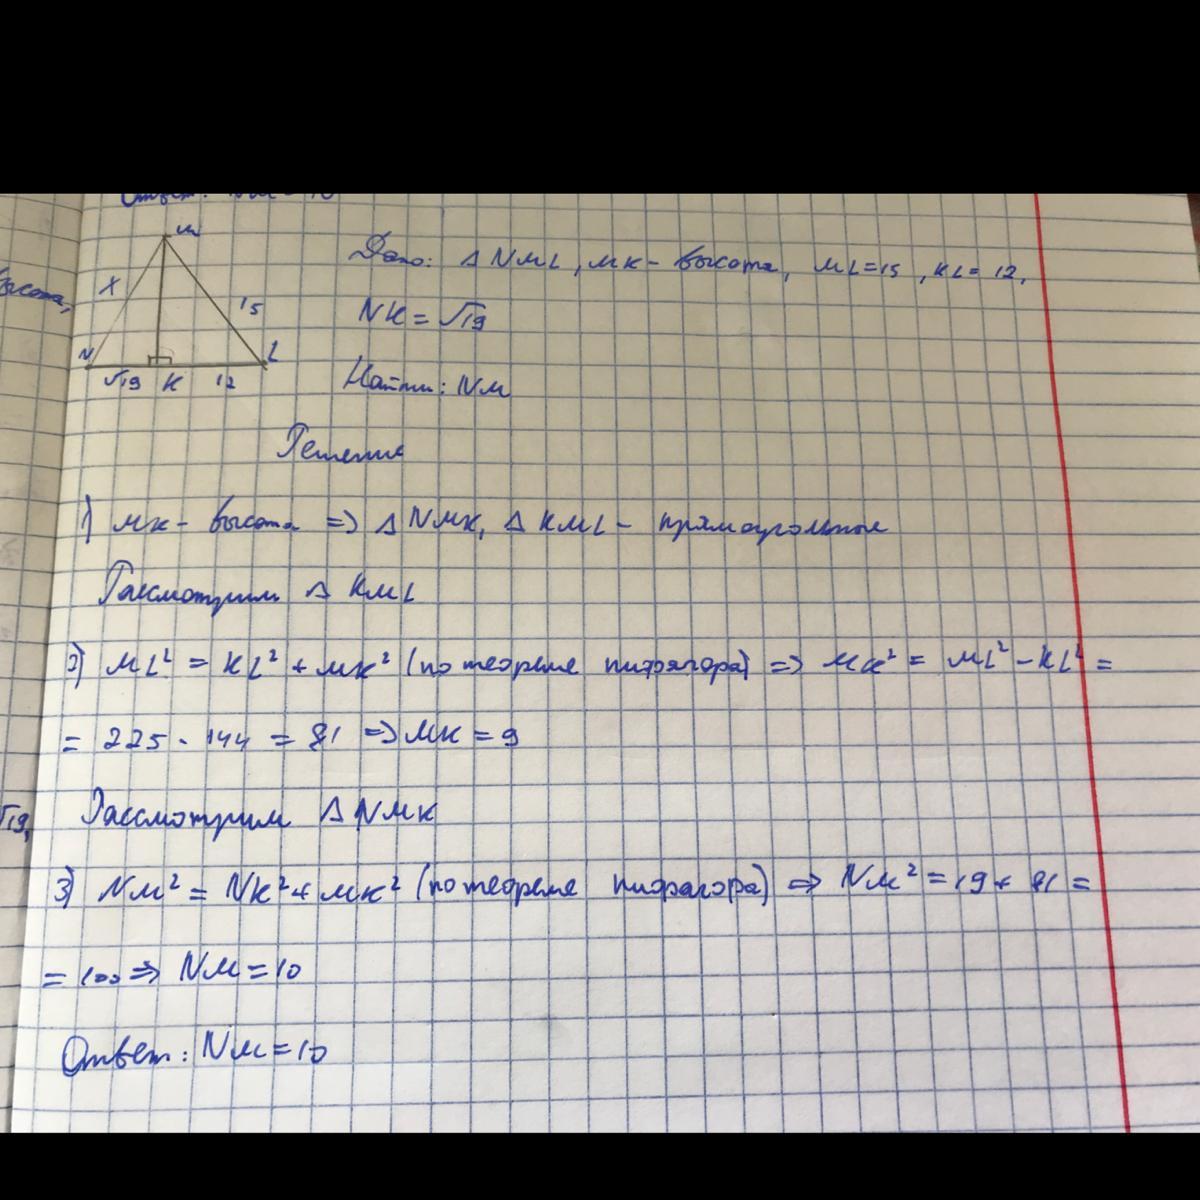 Ответ: NM = 10
высота,
M
X
15
N
L
√19 K 12
Дано: Δ NML, MK - высота, ML = 15, KL = 12,
NK = √19
Найти: NM
Решение
1) MK - высота => Δ NMK, Δ KML - прямоугольные
Рассмотрим Δ KML
2) ML² = KL² + MK² (по теореме пифагора) => MK² = ML² - KL² =
= 225 - 144 = 81 => MK = 9
√19,
Рассмотрим Δ NMK
3) NM² = NK² + MK² (по теореме пифагора) => NM² = 19 + 81 =
= 100 => NM = 10
Ответ: NM = 10